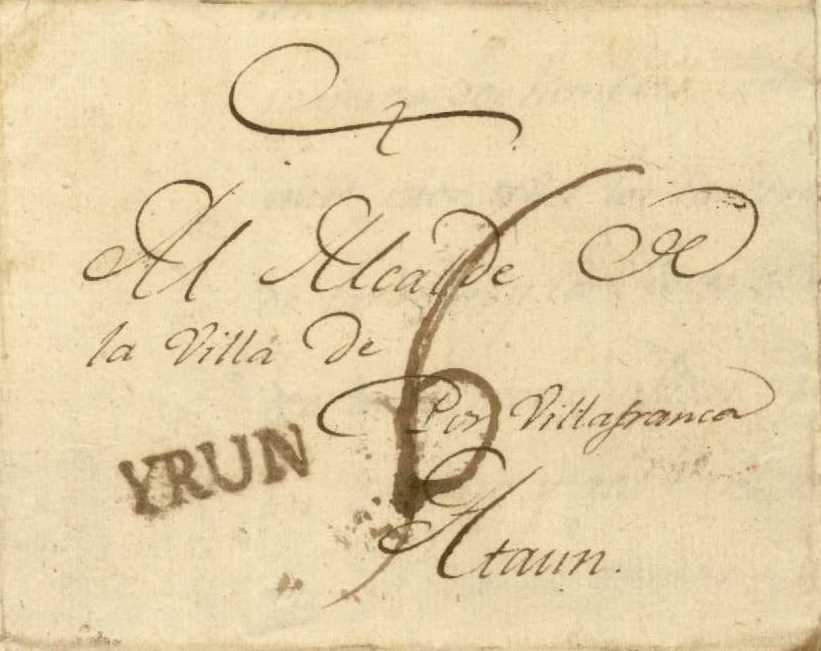 Al Alcalde de
la Villa de
Por Villafranca
YRUN
6
Ataun.